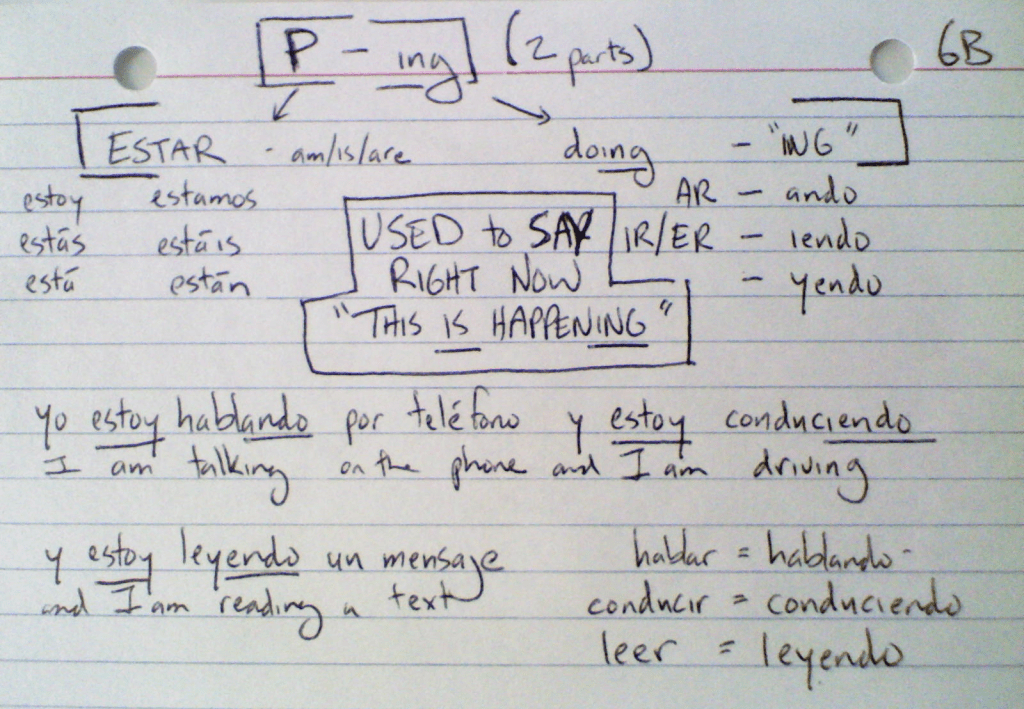 P - ing (2 parts) 6B
ESTAR - am/is/are doing - "ING"
estoy estamos AR - ando
estás estáis USED to SAY IR/ER - iendo
está están RIGHT NOW - yendo
"THIS IS HAPPENING"
yo estoy hablando por teléfono y estoy conduciendo
I am talking on the phone and I am driving
y estoy leyendo un mensaje hablar = hablando
and I am reading a text conducir = conduciendo
leer = leyendo